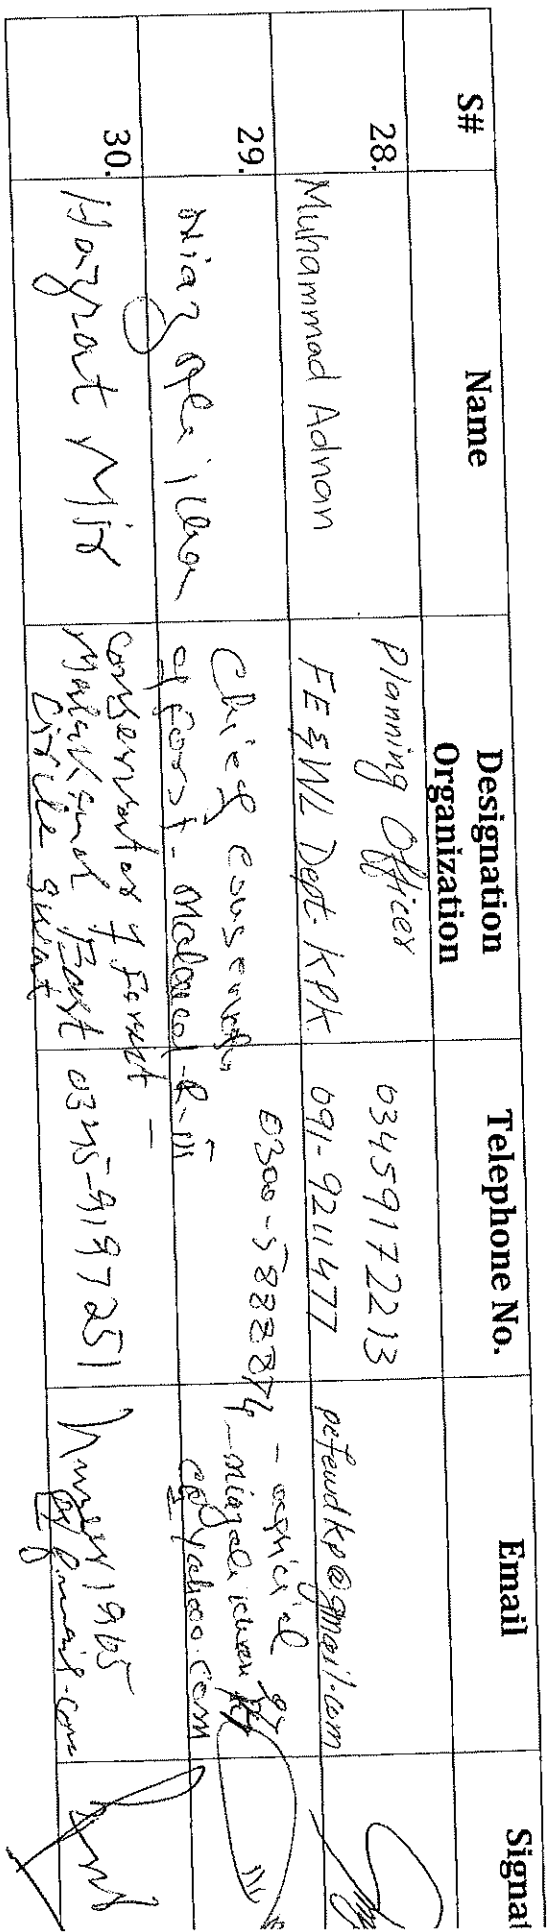 S# Name Designation Organization Telephone No. Email Signat
28. Muhammad Adnan
Planning Officer
FE&WL Dept. KPK
03459172213
091-9211477
pefewdkp@gmail.com
29. Niaz Ali Khan
Chief Conservator
of Forest - Malakand R-III
0300-5888874
official
yahoo.com
30. Hazrat Mir
Conservator of Forest -
Malakand East
Circle Swat
0345-9197251
1965
gmail.com